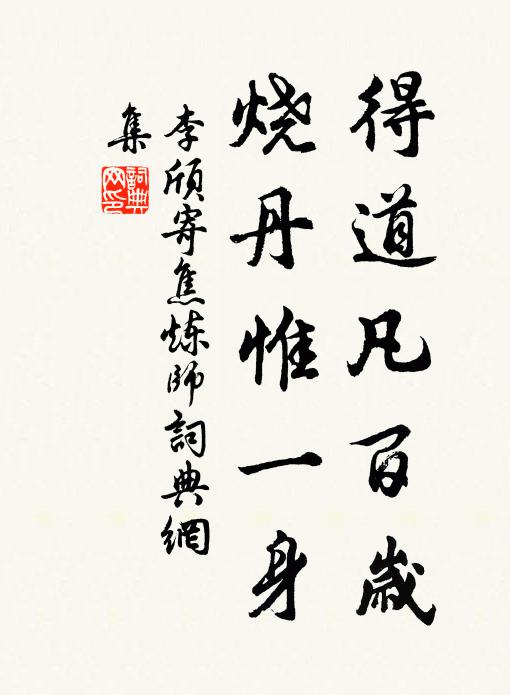 得道凡百歲
烧丹惟一身
李颀寄焦炼師詞典網
集
詞典网印